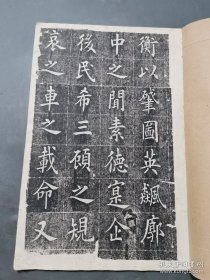 衡以肇圖英飆廓
中之聞素德寔企
後民希三顧之規
哀之車之載命又